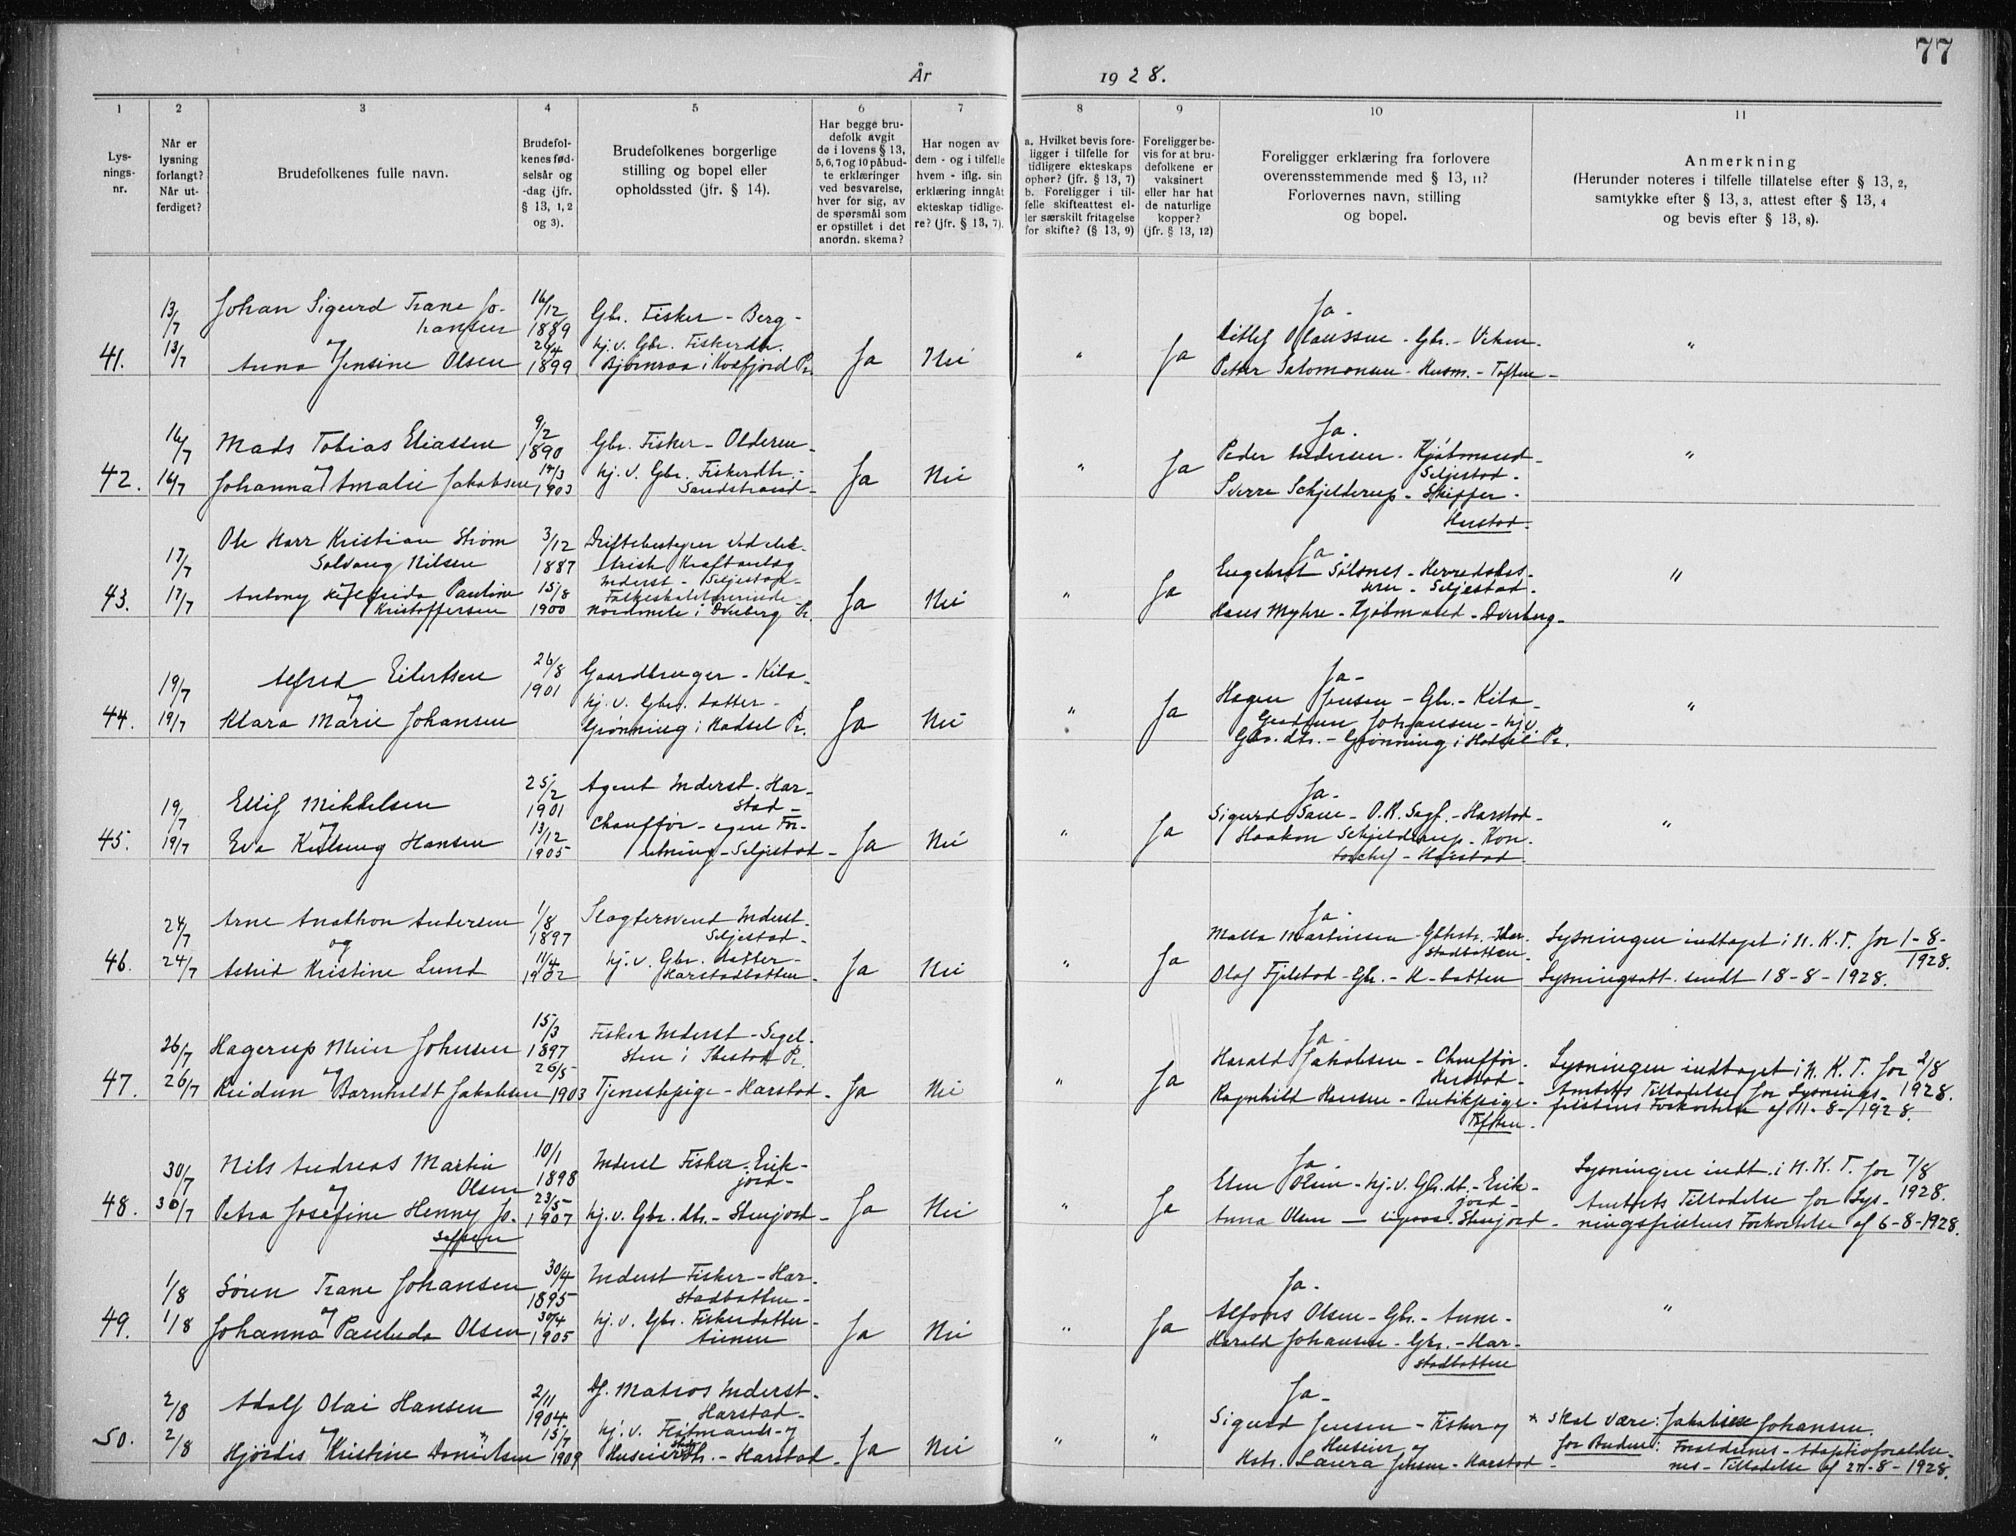 77
År 1928.
1 2 3 4 5 6 7 8 9 10 11
Lys-
nings-
nr.
Når er
lysning
forlangt?
Når ut-
ferdiget?
Brudefolkenes fulle navn.
Brudefol-
kenes fød-
selsår og
-dag (jfr.
§ 13, 1, 2
og 3).
Brudefolkenes borgerlige
stilling og bopel eller
opholdssted (jfr. § 14).
Har begge bru-
defolk avgit
de i lovens § 13,
5, 6, 7 og 10 påbud-
te erklæringer
ved besvarelse,
hver for sig, av
de spørsmål som
er opstillet i det
anordn. skema?
Har nogen av
dem - og i tilfelle
hvem - iflg. sin
erklæring inngått
ekteskap tidlige-
re? (jfr. § 13, 7).
a. Hvilket bevis fore-
ligger i tilfelle for
tidligere ekteskaps
ophør? (jfr. § 13, 7)
b. Foreligger i til-
felle skifteattest el-
ler særskilt fritagelse
for skifte? (§ 13, 9)
Foreligger be-
vis for at bru-
defolkene er
vaksinert
eller har hat
de naturlige
kopper?
(jfr. § 13, 12)
Foreligger erklæring fra forlovere
overensstemmende med § 13, 11?
Forlovernes navn, stilling
og bopel.
Anmerkning
(Herunder noteres i tilfelle tillatelse efter § 13, 2,
samtykke efter § 13, 3, attest efter § 13, 4
og bevis efter § 13, 8).
41.
13/7
13/7
Johan Sigurd Trane Jo-
hansen
og
Anna Jensine Olsen
16/12
1889
1899
Gbr. Fisker - Berg -
hj.v. Gbr. Fiskerdtr.
i Kvæfjord Pr.
Ja
Nei
"
Ja
Ja -
Ditlef Olaussen - Gbr. - Viken -
Petter Salomonsen - Husm. - Toften -
"
42.
16/7
16/7
Mads Tobias Eliassen
og
Johanna Amalie Jakobsen
9/2
1890
1903
Gbr. Fisker - Olderen -
hj.v. Gbr. Fiskerdtr. -
Sandstrand -
Ja
Nei
"
Ja
Ja.
Peder Andersen - Kjøbmand -
Seljestad -
Sverre Schjelderup - Skipper -
Harstad -
"
43.
17/7
17/7
Ole Marr Kristian Strøm
Solvang Nilsen
og
Pauline
Kristoffersen
3/12
1887
15/8
1900
Driftsbestyrer ved elek-
trisk Kraftanlæg
Inderst - Seljestad -
Nordmele i Dverberg Pr.
Ja
Nei
"
Ja
Ja -
Engebret Sølsnes - Herredskas-
serer - Seljestad -
Hans Myhre - Kjøbmand - Dverberg -
"
44.
19/7
19/7
Alfred Eilertsen
og
Klara Marie Johansen
26/8
1901
Gaardbruger - Kila -
hj.v. Gbr. datter -
Grønning i Hadsel Pr.
Ja
Nei
"
Ja
Ja -
Hagen Jensen - Gbr. - Kila -
Johansen - hj.v.
Gbr. dtr. - Grønning i Hadsel Pr.
"
45.
19/7
19/7
Ellif Mikkelsen
og
Eva Hansen
25/2
1901
13/12
1905
Agent Inderst - Har-
stad -
Chauffør - egen For-
retning - Seljestad -
Ja
Nei
"
Ja
Ja -
Sigurd Saue - O.R. Sagf. - Harstad -
Haakon Schjelderup - Kon-
torchef - Harstad
"
46.
24/7
24/7
Arne Anathon Andersen
og
Astrid Kristine Lund
1/8
1897
11/4
1902
Slagtersvend Inderst
Seljestad -
hj.v. Gbr. datter -
Harstadbotten -
Ja
Nei
"
Ja
Ja -
Malla Martinsen - Gbkstr. - Har-
stadbotten -
Olaf Fjelstad - Gbr. - H-botten
Lysningen indtaget i N. K. T. for 1-8-
1928.
Lysningsatt. sendt 18-8-1928.
47.
26/7
26/7
Hagerup Meier Johnsen
og
Reidun Barnholdt Jakobsen
15/3
1897
26/5
1903
Fisker Inderst - Segel-
sten i Ibestad Pr.
Tjenestepige - Harstad -
Ja
Nei
"
Ja
Ja -
Harald Jakobsen - Chauffør -
Harstad -
Ragnhild Hansen - Butikpige -
Toften -
Lysningen indtaget i N. K. T. for 2/8
1928.
Amtets Tilladelse for Lysnings-
fristens Forkortelse af 11-8-1928.
48.
30/7
30/7
Nils Andreas Martin
Olsen
og
Petra Josefine Henny Jo-
sefsen
10/1
1898
23/5
1907
Inderst Fisker - Erik-
jord -
hj.v. Gbr. dtr. - Stenjord -
Ja
Nei
"
Ja
Ja -
Elen Olsen - hj.v. Gbr. dtr. - Erik-
jord -
Anna Olsen - - Stenjord -
Lysningen indt. i N. K. T. for 7/8
1928.
Amtets Tilladelse for Lys-
ningsfristens Forkortelse af 6-8-1928.
49.
1/8
1/8
Søren Trane Johansen
og
Johanna Paulida Olsen
30/4
1895
30/4
1905
Inderst Fisker - Har-
stadbotten -
hj.v. Gbr. Fiskerdatter -
Aunen
Ja
Nei
"
Ja
Ja -
Alfons Olsen - Gbr. - Aune -
Harald Johansen - Gbr. - Har-
stadbotten
"
50.
2/8
2/8
Adolf Olai Hansen
og
Hjørdis Kristine Danielsen
2/11
1904.
15/7
1909
Df. Matros Inderst -
Harstad -
hj.v. Fløtmands- og
Huseierdtr. - Harstad -
Ja
Nei
"
"
Ja -
Sigurd Jensen - Fisker og
Huseier og
Hstr. Laura Jensen - Harstad -
* skal være: Jakobsen Johansen.
for Bruden: Forældrenes - Adoptivforældre-
nes - Tilladelse af 27-8-1928.